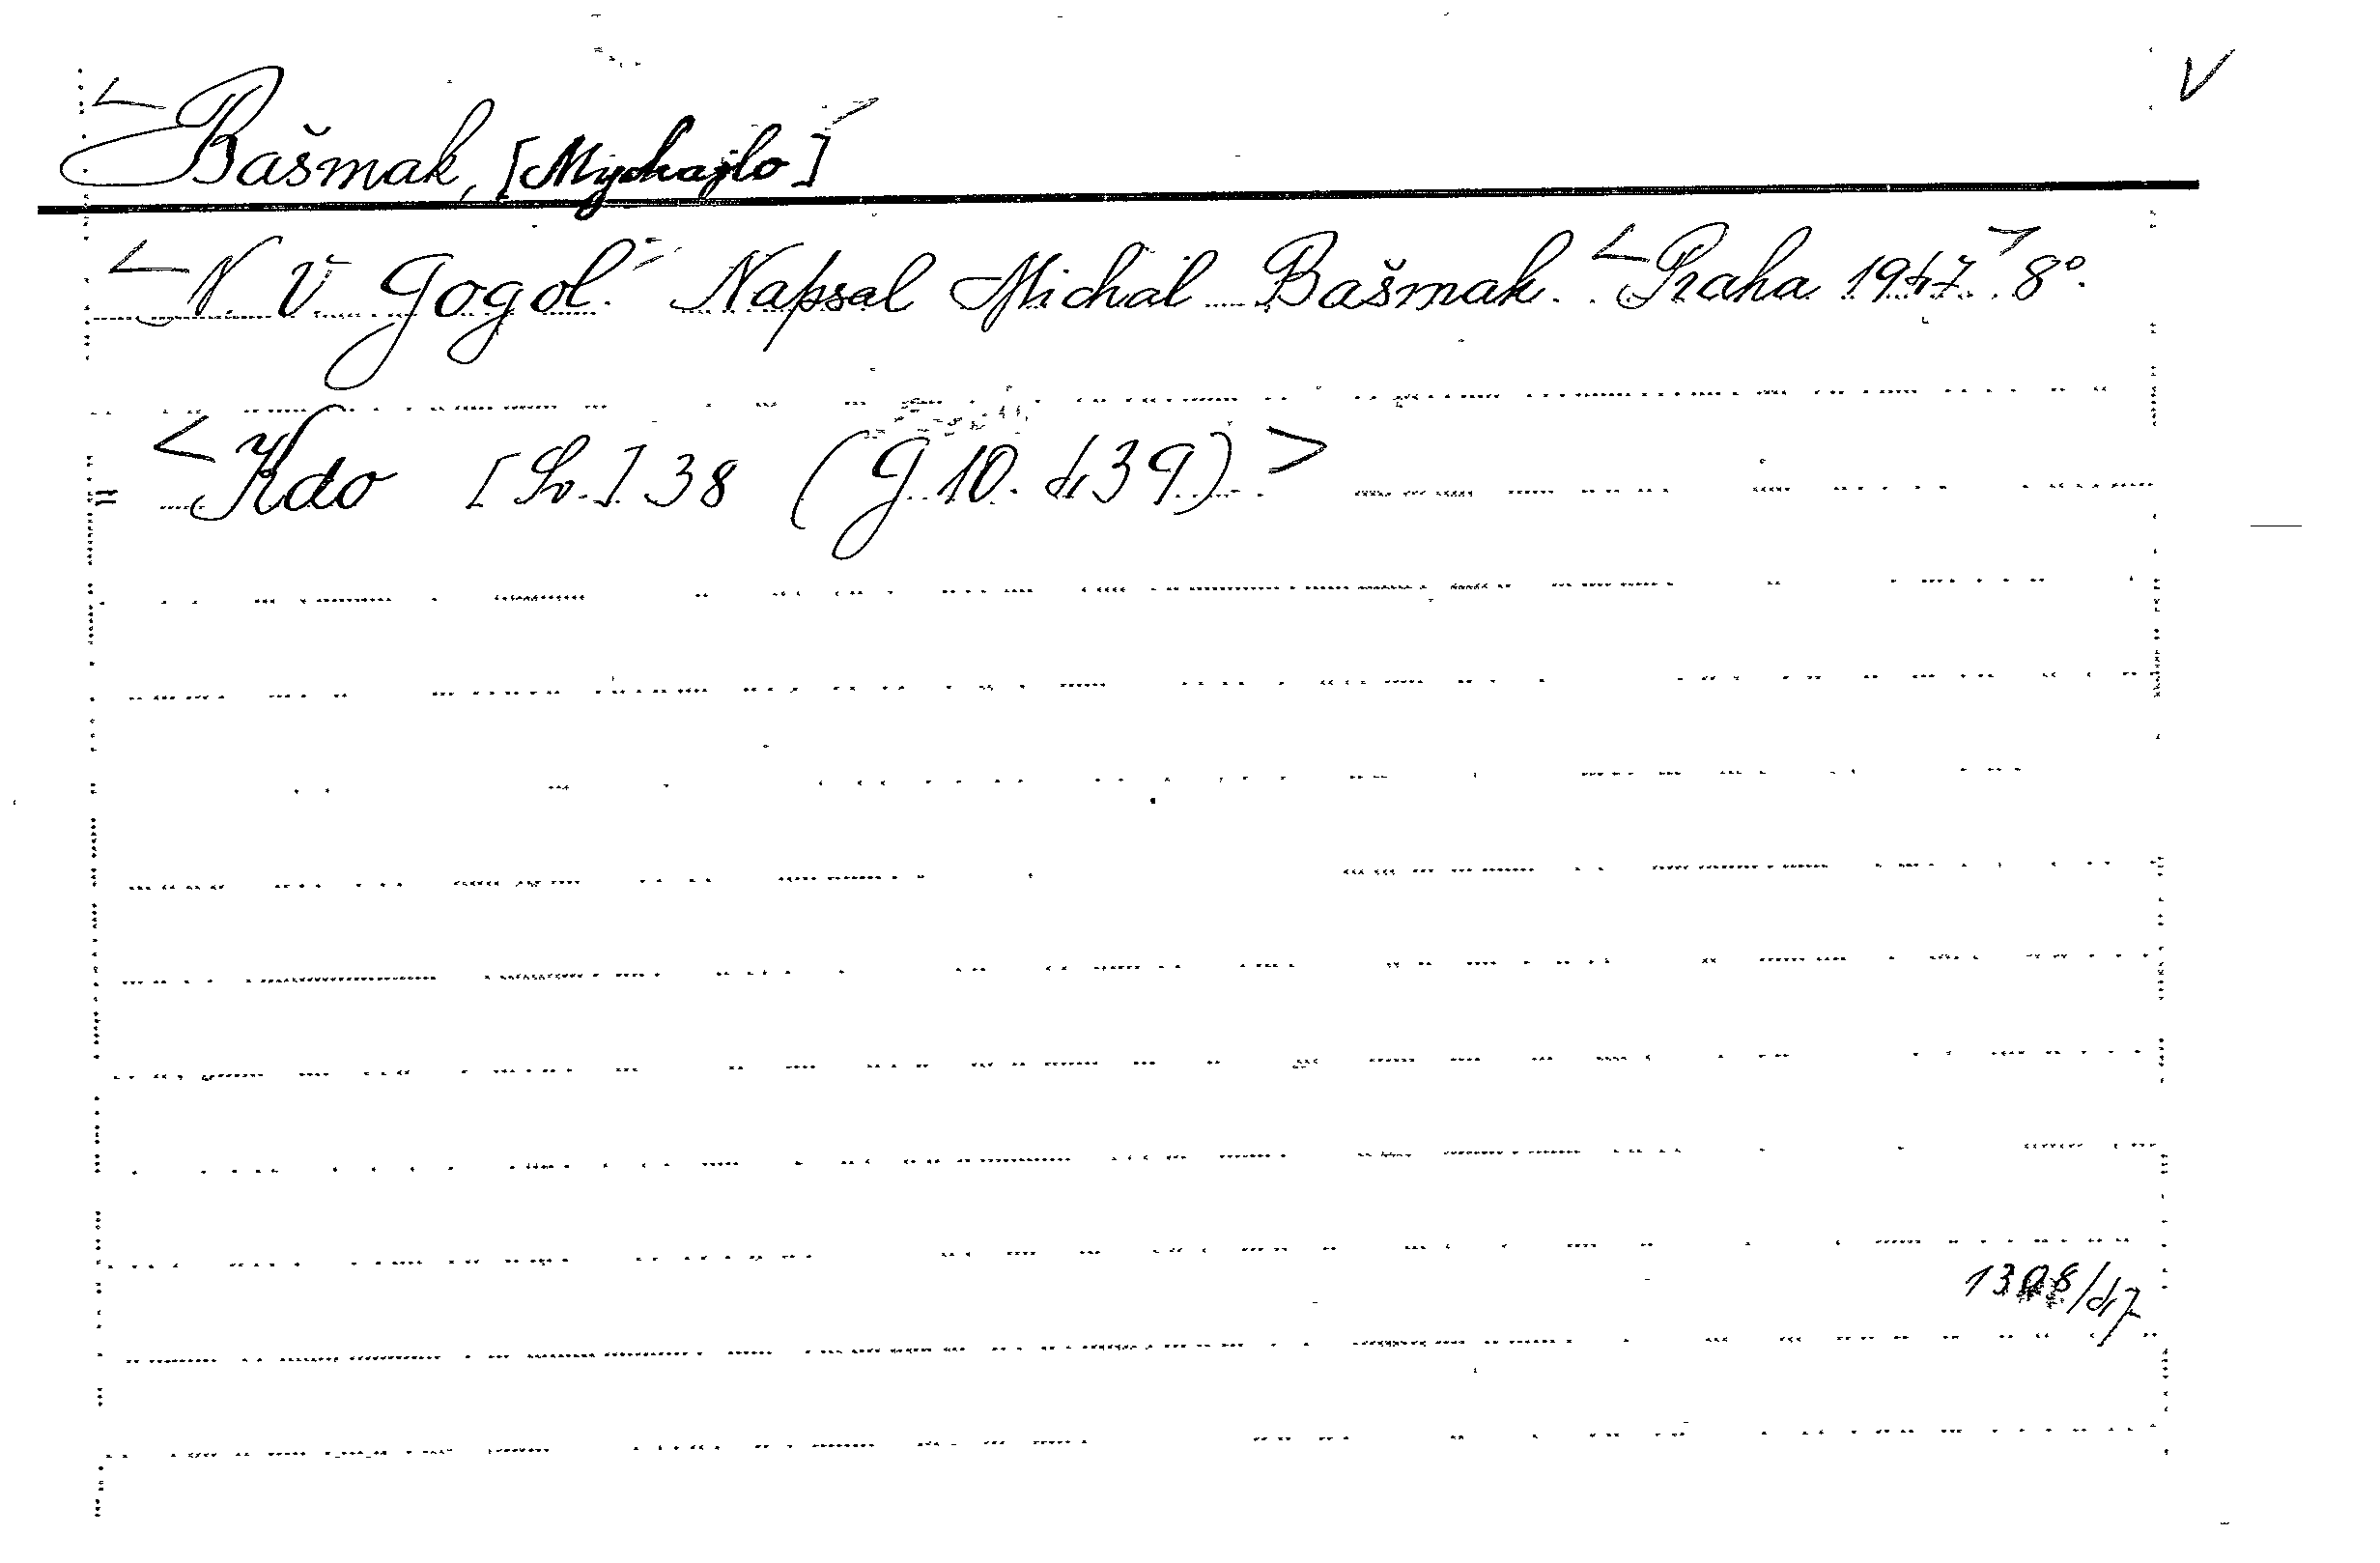 V
<Bašmak, [Mychajlo]>
<N. V. Gogol.> Napsal Michal Bašmak. <Praha 1947> 8°.
= <Kdo [Sv.] 38 (G 10. 439)>
/47